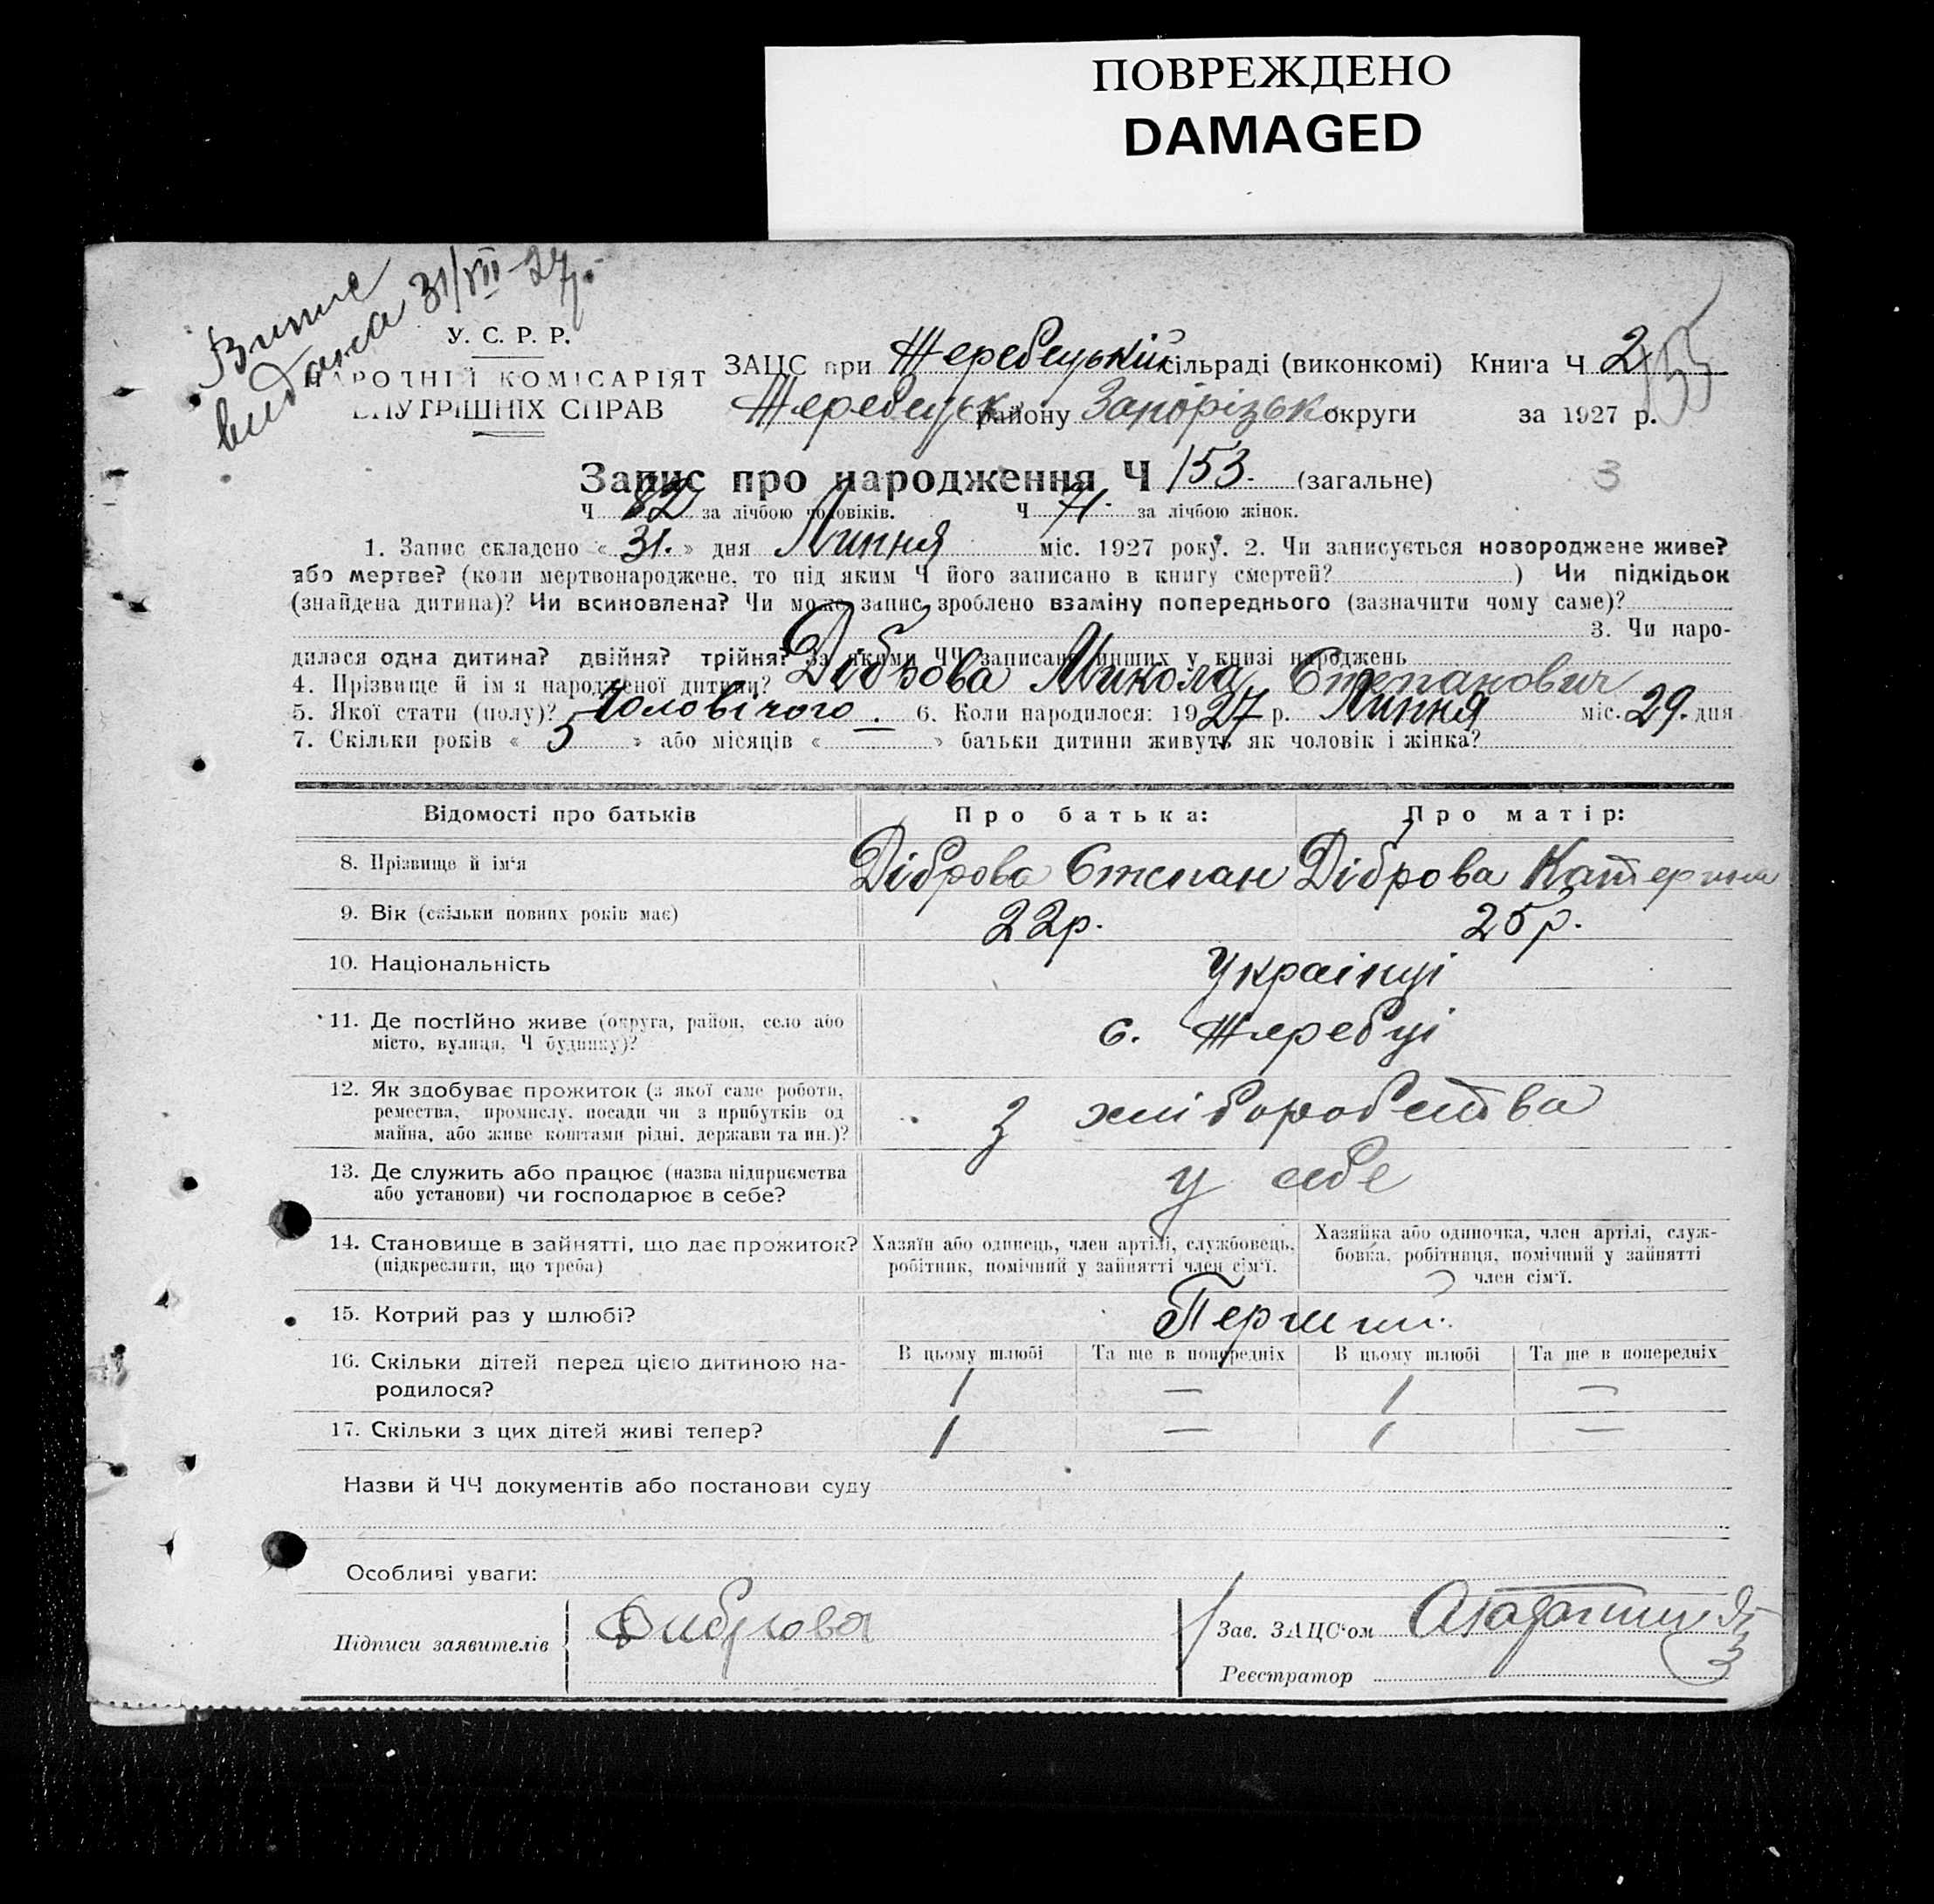 ПОВРЕЖДЕНО
DAMAGED
Випис
видана 31/VII-27р.
У. С. Р. Р.
НАРОДНІЙ КОМІСАРІЯТ
ВНУТРІШНІХ СПРАВ
ЗАЦС при Жеребецькій сільраді (виконкомі) Книга Ч 2 155
Жеребецьк району Запорізьк округи за 1927 р.
Запис про народження Ч 153. (загальне) 3
Ч 82 за лічбою чоловіків. Ч 71. за лічбою жінок.
1. Запис складено « 31. » дня Липня міс. 1927 року. 2. Чи записується новороджене живе?
або мертве? (коли мертвонароджене, то під яким Ч його записано в книгу смертей? ) Чи підкідьок
(знайдена дитина)? Чи всиновлена? Чи може запис зроблено взаміну попереднього (зазначити чому саме)?
3. Чи наро-
дилася одна дитина? двійня? трійня? За якими ЧЧ записано инших у книзі народжень
4. Прізвище й ім'я народженої дитини? Діброва Микола Степанович
5. Якої стати (полу)? Чоловічого. 6. Коли народилося: 1927 р. Липня міс. 29. дня
7. Скільки років « 5 » або місяців « — » батьки дитини живуть як чоловік і жінка?
Відомості про батьків Про батька: Про матір:
8. Прізвище й ім'я Діброва Степан Діброва Катерина
9. Вік (скільки повних років має) 22р. 25р.
10. Національність Українці
11. Де постійно живе (округа, район, село або
місто, вулиця, Ч будинку)? с. Жеребці
12. Як здобуває прожиток (з якої саме роботи,
ремества, промислу, посади чи з прибутків од
майна, або живе коштами рідні, держави та ин.)? З хліборобства
13. Де служить або працює (назва підприємства
або установи) чи господарює в себе? у себе
14. Становище в зайнятті, що дає прожиток?
(підкреслити, що треба)
Хазяїн або одинець, член артілі, службовець,
робітник, помічний у зайнятті член сім'ї.
Хазяйка або одиночка, член артілі, служ-
бовка, робітниця, помічний у зайнятті
член сім'ї.
15. Котрий раз у шлюбі? Перший.
16. Скільки дітей перед цією дитиною на-
родилося?
В цьому шлюбі Та ще в попередніх В цьому шлюбі Та ще в попередніх
1 — 1 —
17. Скільки з цих дітей живі тепер? 1 — 1 —
Назви й ЧЧ документів або постанови суду
Особливі уваги:
Підписи заявителів Диброва
Зав. ЗАЦС'ом
Реєстратор